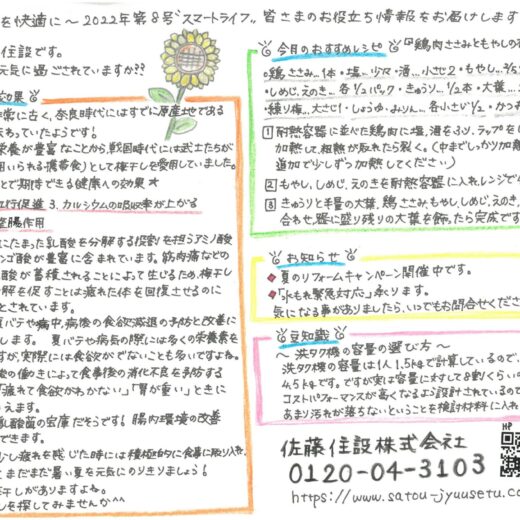 を快適に～2022年第8号〝スマートライフ〟皆さまのお役立ち情報をお届けします
住設です。
元気に過ごされていますか??
効果
常に古く、奈良時代にはすでに原産地である
伝わっていたようです！
栄養が豊富なことから、戦国時代には武士たちが
用いられる携帯食)として梅干しを愛用していました。
とで期待できる健康への効果★
血行促進 3.カルシウムの吸収率が上がる
整腸作用
にたまった乳酸を分解する役割を担うアミノ酸
ンゴ酸が豊富に含まれています。筋肉痛などの
酸が蓄積されることによって生じるため、梅干し
解を促すことは疲れた体を回復させるのに
とされています。
夏バテや痛中、病後の食欲減退の予防と改善に
します。夏バテや病気の際には多くの栄養素を
すが、実際には食欲がでないことも多いですよね。
後の働きによって食事後の消化不良を予防する
「疲れて食欲がわかない」「胃が重い」ときに
えます。
乳酸菌の宝庫だそうです！腸内環境の改善
できます。
少し疲れを感じた時には積極的に食事に取り入れ、
とまだまだ暑い夏を元気にのりきりましょう！
干しがありますよね。
しを探してみませんか^^
今月のおすすめレシピ 『鶏肉ささみともやしの
・鶏ささみ…1本・塩…少々・酒…小さじ2・もやし…
・しめじ、えのき…各1/2パック・きゅうり…1/2本・大葉…
・練り梅…大さじ1・しょうゆ・みりん…各小さじ1/2・かつお
1 耐熱容器に並べた鶏肉に塩、酒をふり、ラップを
加熱して、粗熱が取れたら裂く。(中までしっかり加熱
追加で少しずつ加熱してください)
2 もやし、しめじ、えのきを耐熱容器に入れレンジで
3 きゅうりと半量の大葉、鶏ささみ、もやし、しめじ、えのき、
合わせ、器に盛り残りの大葉を飾ったら完成です
お知らせ
◆夏のリフォームキャンペーン開催中です。
◆「水もれ緊急対応」承ります。
気になる事がありましたら、いつでもお問合せくださ
豆知識
～洗タク機の容量の選び方～
洗タク機の容量は1人1.5kgで計算しているので、
4.5kgです。ですが実は容量に対して8割くらいの
コストパフォーマンスが高くなるよう設計されているので
あまり汚れが落ちないということを検討材料に入れ
佐藤住設株式会社
HP
0120-04-3103
https://www.satou-jyuusetu.co